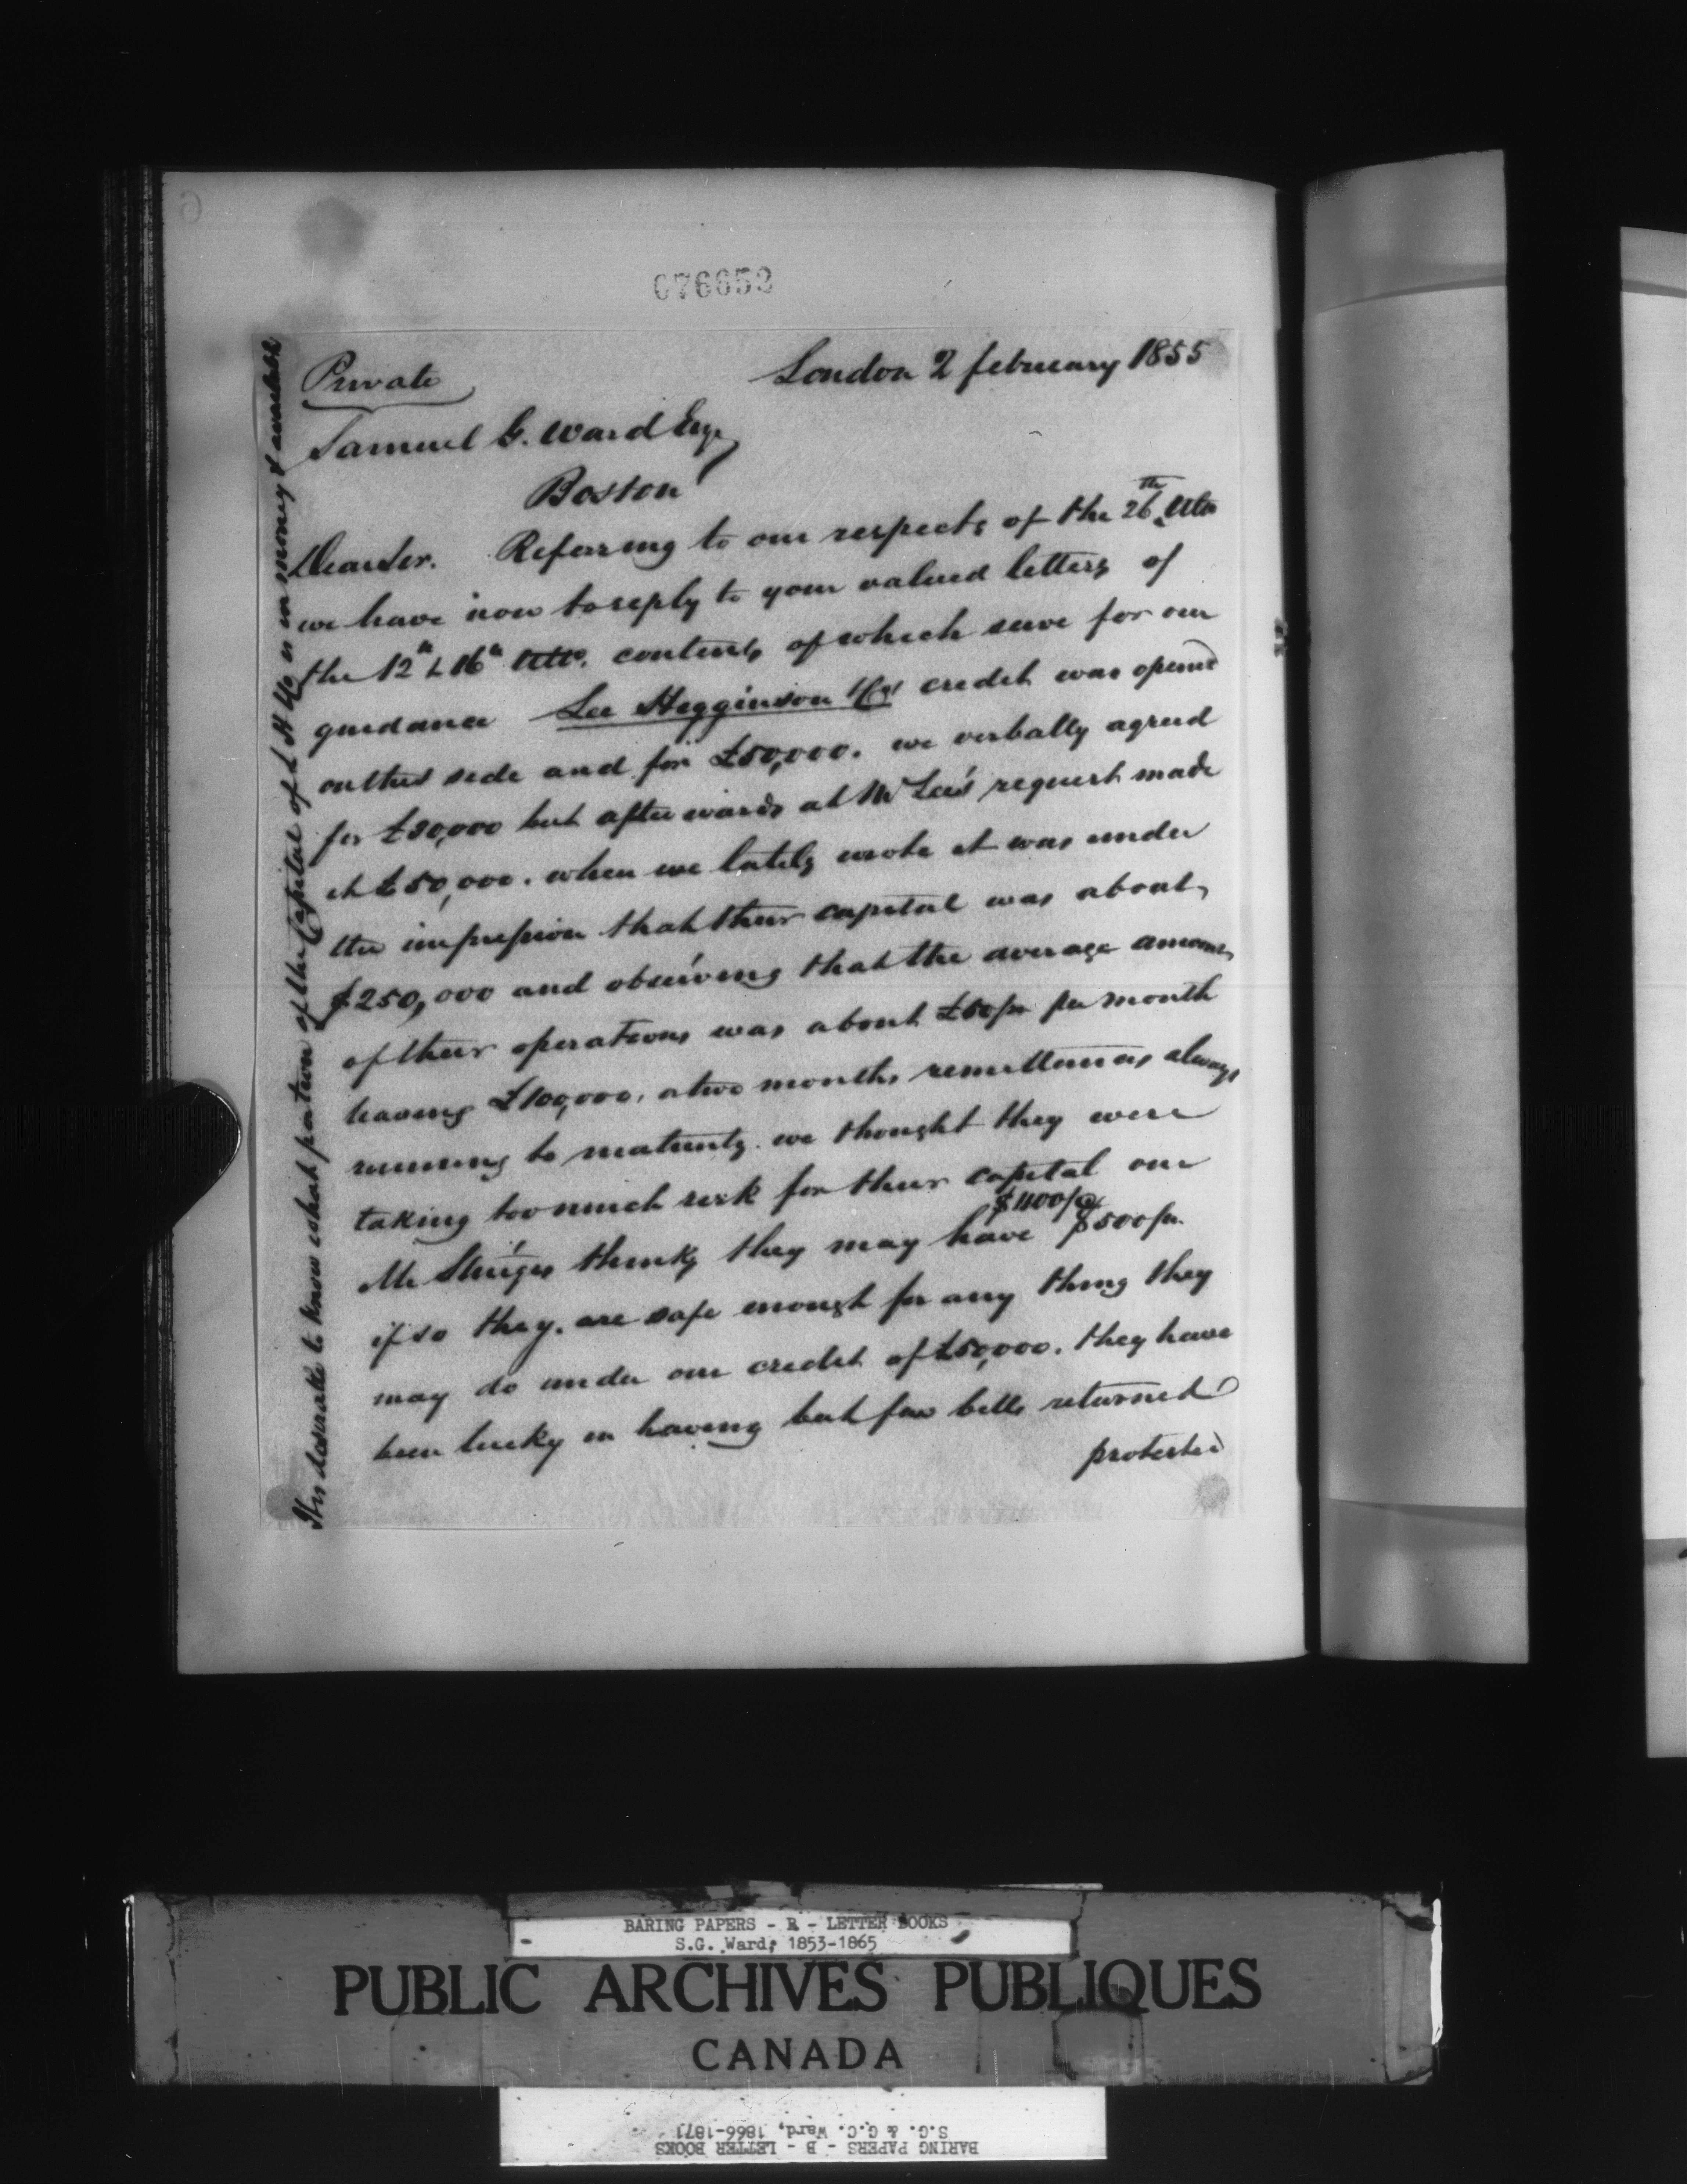 076652
Private
London 2 february 1855
Samuel G. Ward Esqr
Boston
Dear Sir. Referring to our respects of the 26th Ulto
we have now to reply to your valued letters of
the 12th & 16th Ulto. contents of which serve for our
guidance Lee Higginson & Co's credit was opened
on this side and for £50,000. we verbally agreed
for £30,000 but afterwards at Mr Lee's request made
it £50,000. when we lately wrote it was under
the impression that their capital was about
$250,000 and observing that the average amount
of their operations was about £50/m per month
having £100,000, a two months remittances always
running to maturity. we thought they were
taking too much risk for their capital our
Mr Sturgis thinks they may have $400/@ $500/m.
if so they. are safe enough for any thing they
may do under our credit of £50,000. they have
been lucky in having but few bills returned
protested
It is desirable to know what portion of the Capital of L H & Co is in money & available
BARING PAPERS - B - LETTER BOOKS
S.G. Ward, 1853-1865
PUBLIC ARCHIVES PUBLIQUES
CANADA
BARING PAPERS - B - LETTER BOOKS
S.G. & G.C. Ward, 1866-1871